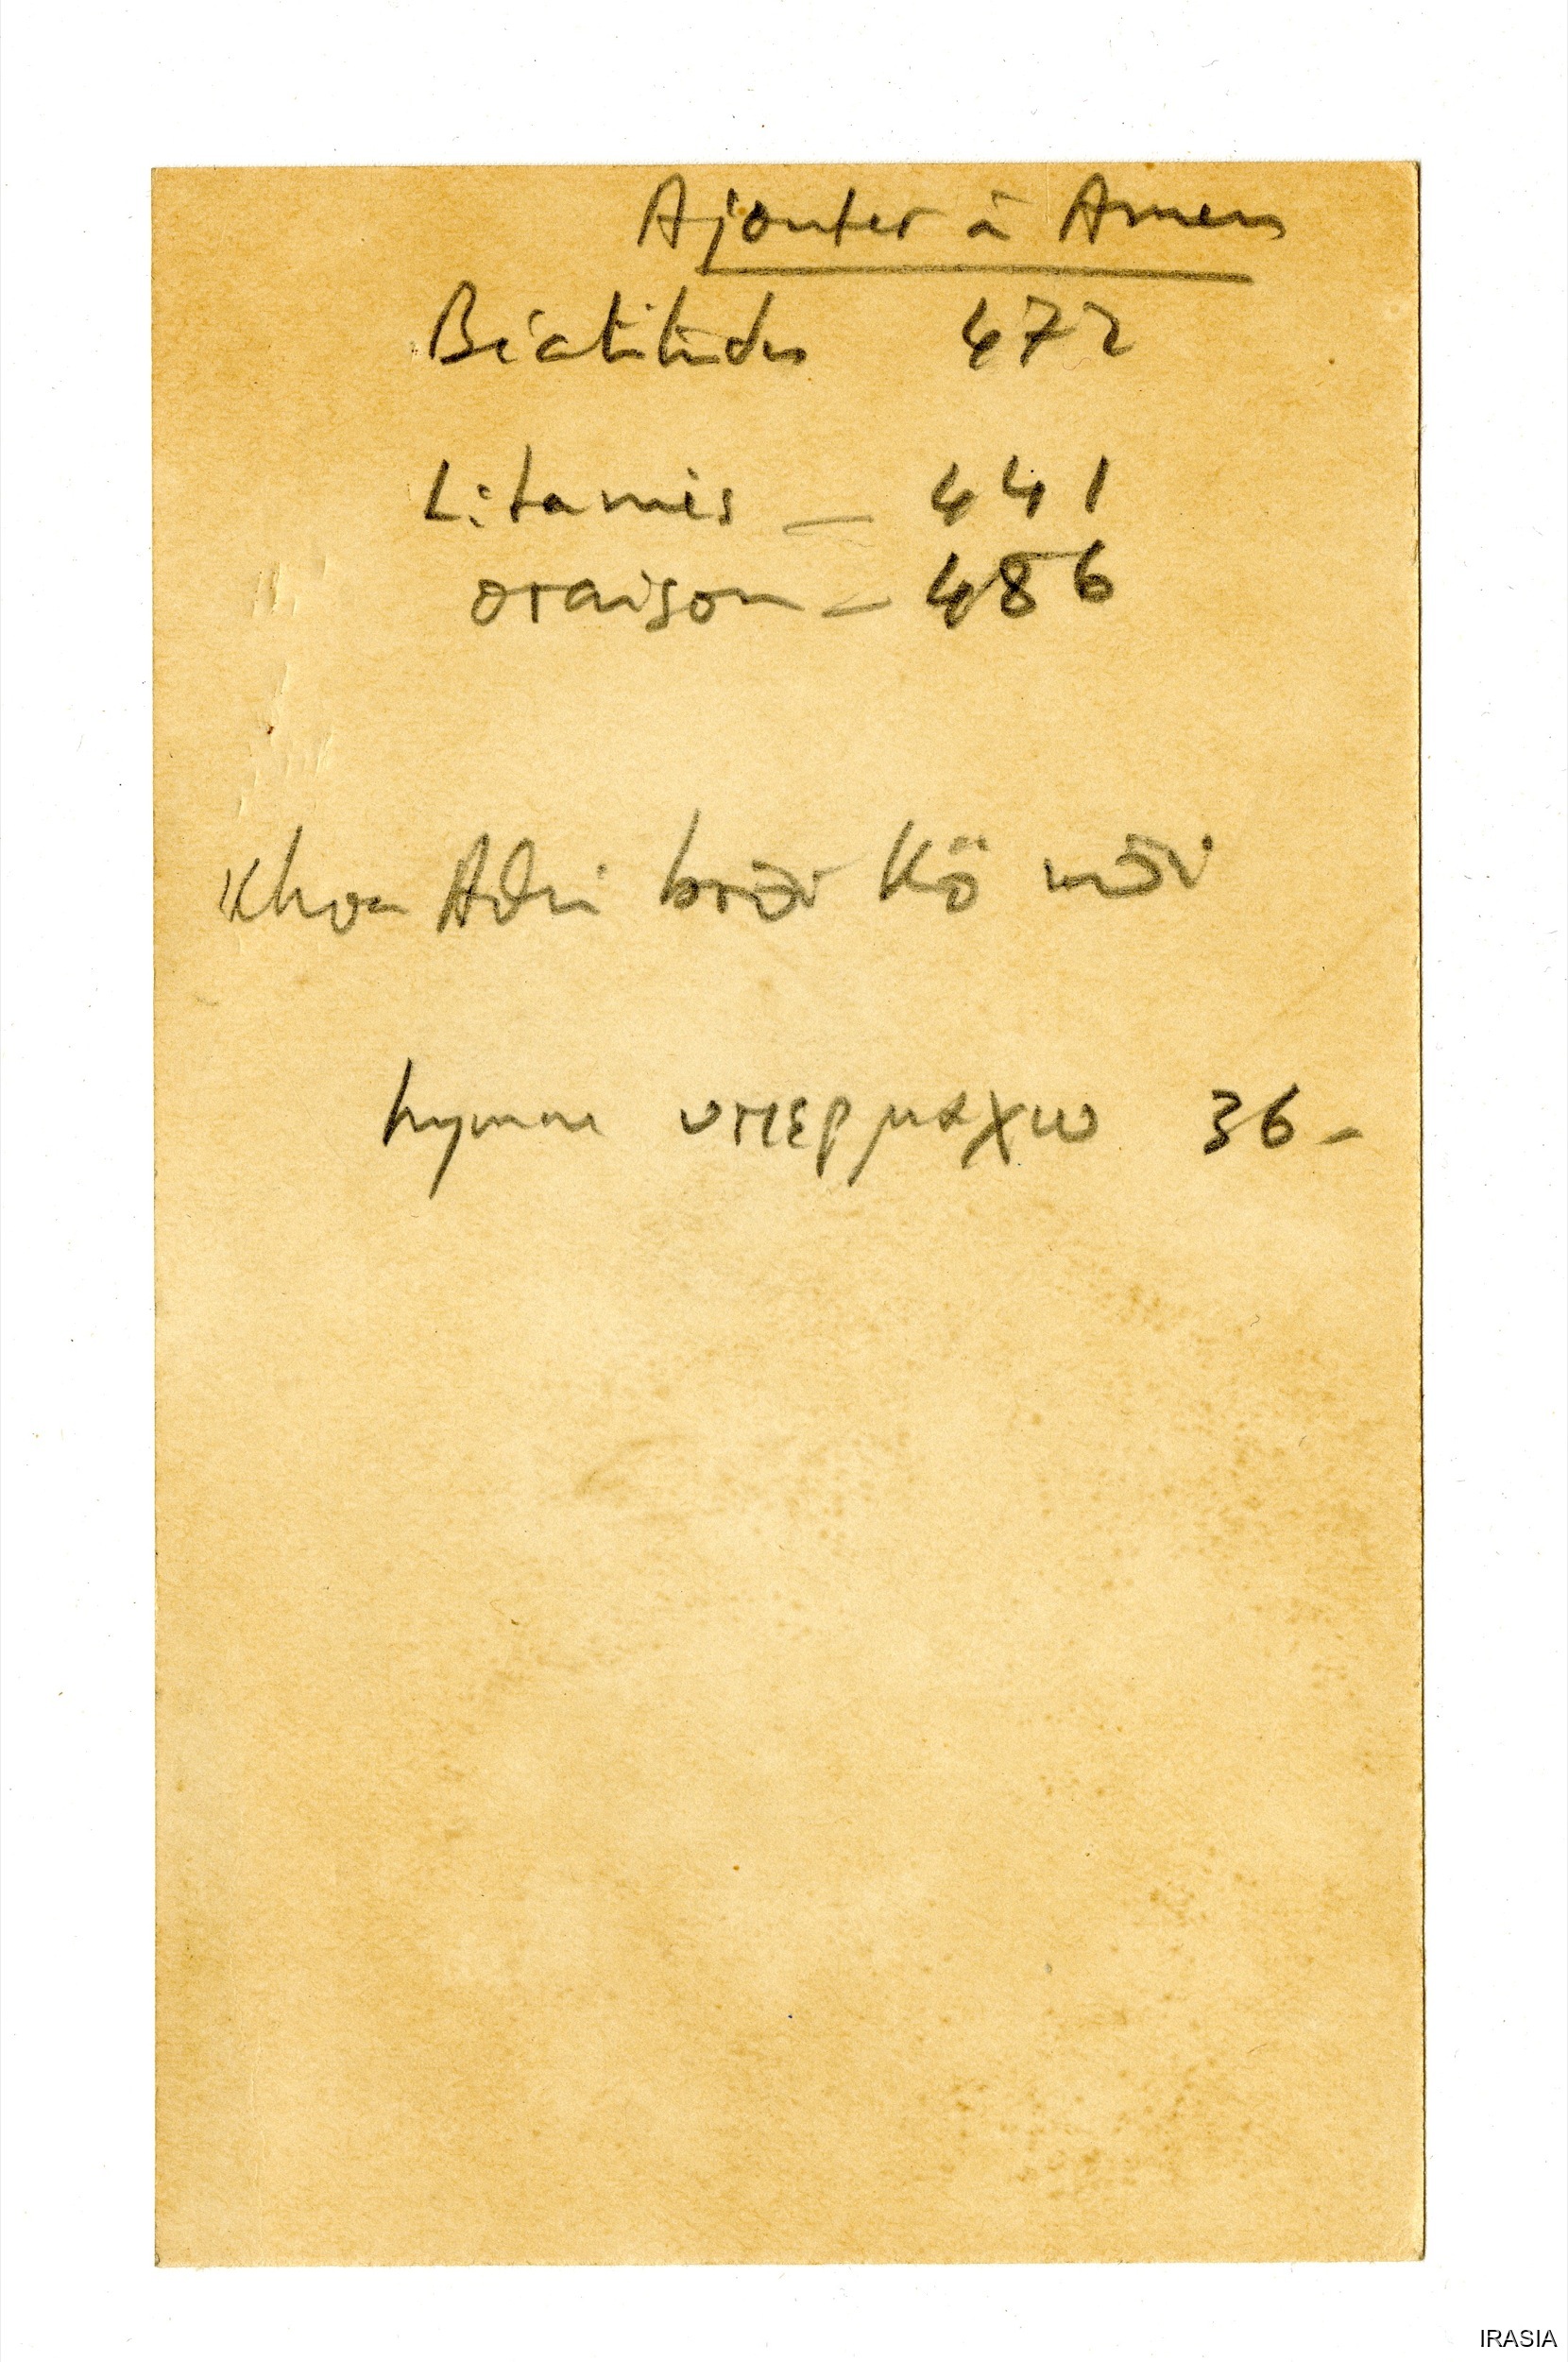 Ajouter à Amen
Béatitudes 472
Litanies — 441
oraison — 486
Khoa Adei brơi Kö mơi
hymne υπερμαχω 36 -
IRASIA